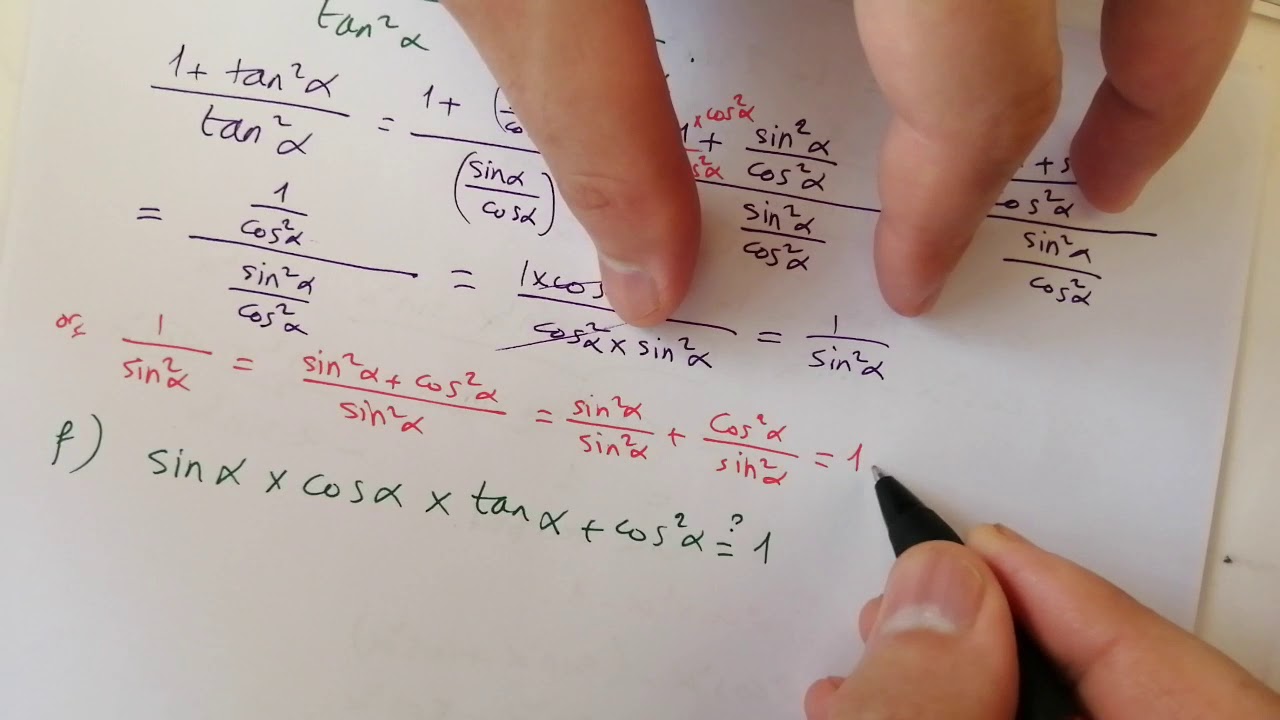 tan²α
(1 + tan²α)/(tan²α) = (1 + (/(sinα/cosα) 1 ×cos²α + sin²α/cos²α / (sin²α/cos²α) + s / cos²α / (sin²α/cos²α)
= (1/cos²α)/(sin²α/cos²α) = (1×cos)/(cos²α × sin²α) = 1/sin²α
or, 1/sin²α = (sin²α + cos²α)/sin²α = sin²α/sin²α + cos²α/sin²α = 1
f) sinα × cosα × tanα + cos²α ≟ 1